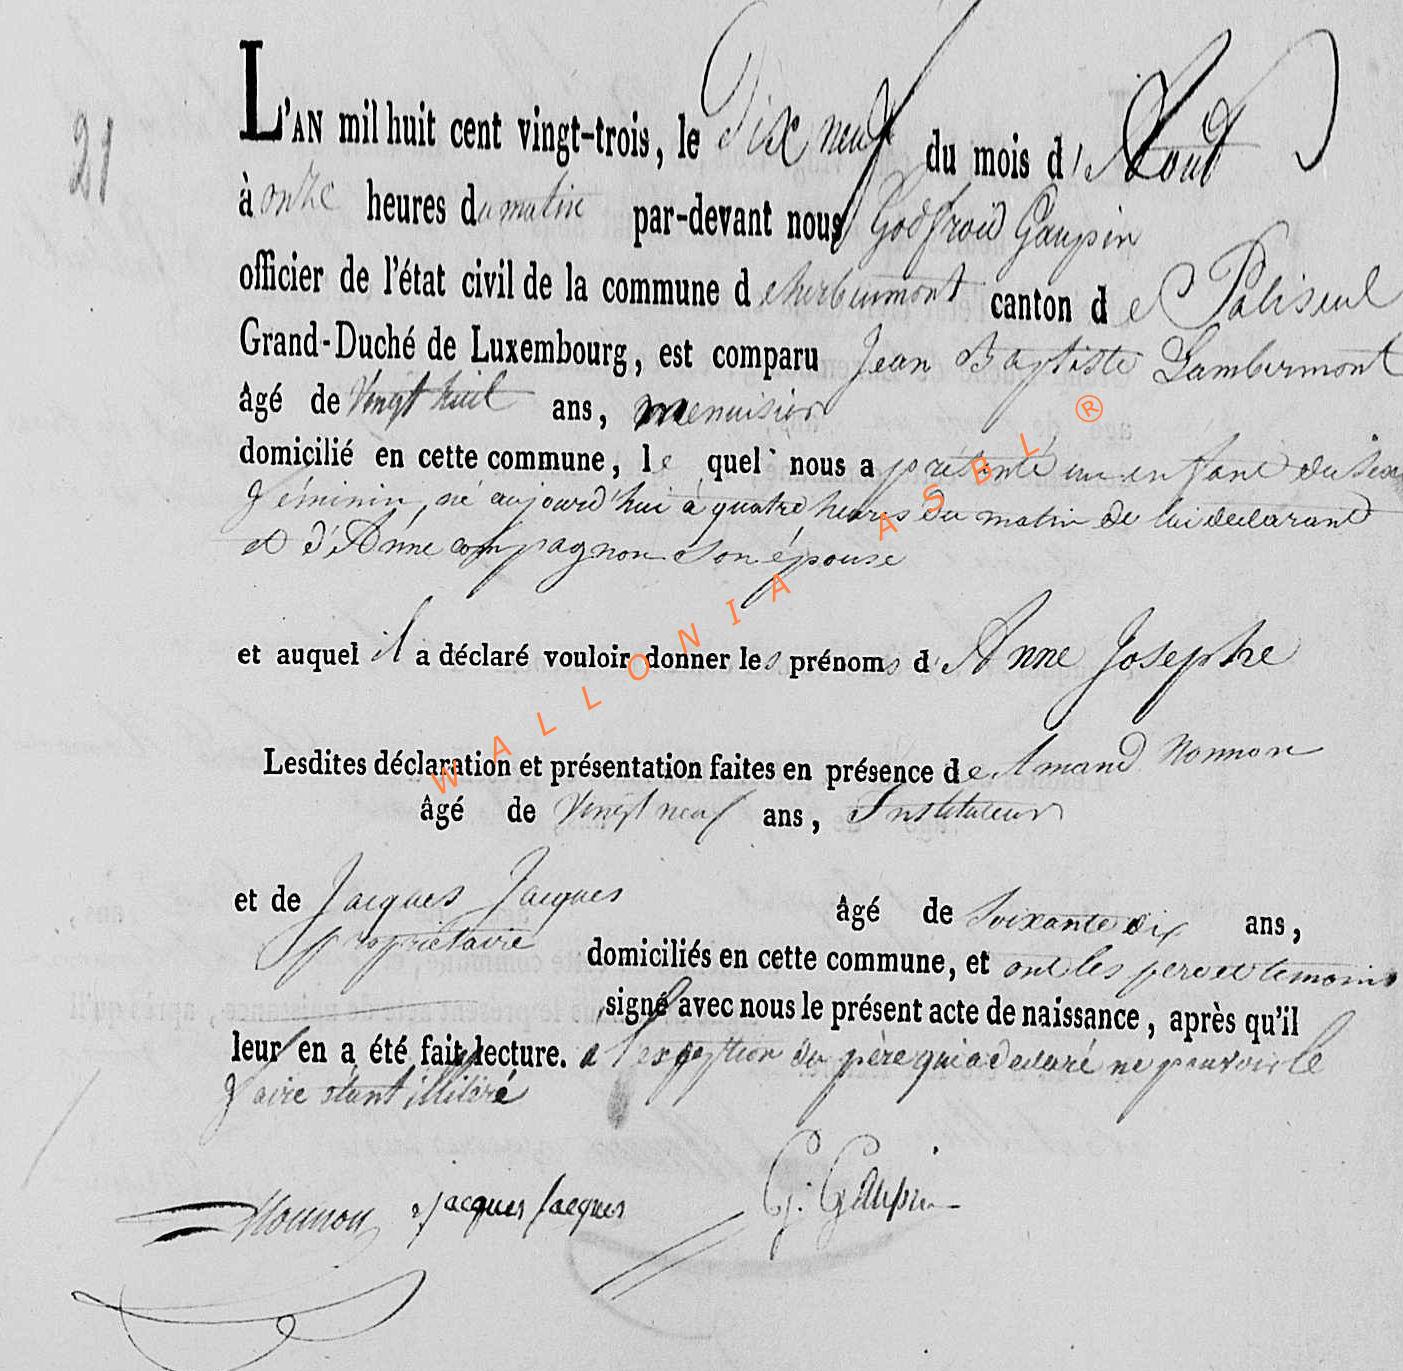 21
L'AN mil huit cent vingt-trois, le dix neuf du mois d'Aout
à onze heures du matin par-devant nous Godfroid Gaupin
officier de l'état civil de la commune d'herbeumont canton de Paliseul
Grand-Duché de Luxembourg, est comparu Jean Baptiste Lambermont
âgé de Vingt huit ans, menuisier
domicilié en cette commune, le quel nous a présenté un enfant du sexe
féminin, né aujourd'hui à quatre heures du matin de lui déclarant
et d'Anne compagnon son épouse
et auquel il a déclaré vouloir donner les prénoms d'Anne Josephe
Lesdites déclaration et présentation faites en présence de Amand Nonnon
âgé de Vingt neuf ans, Instituteur
et de Jacques Jacques âgé de Soixante dix ans,
propriétaire domiciliés en cette commune, et ont les pere et temoins
signé avec nous le présent acte de naissance, après qu'il
leur en a été fait lecture. a l'exception du père qui a declaré ne pouvoir le
faire étant illitéré
Nonnon Jacques Jacques G. Gaupin
WALLONIA ASBL ®